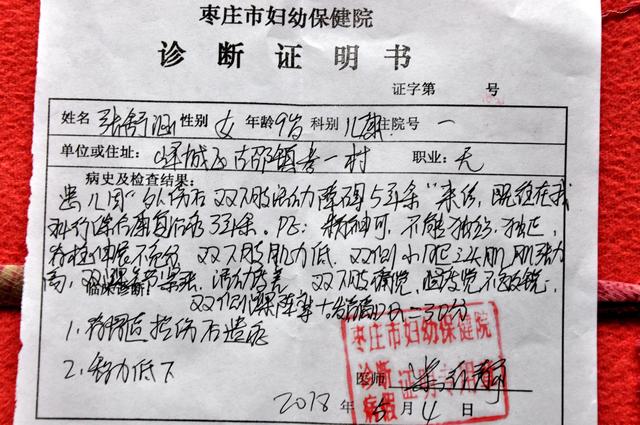 枣庄市妇幼保健院
诊断证明书
证字第 号
姓名 张舒涵 性别 女 年龄 9岁 科别 儿康 住院号 一
单位或住址: 峄城区古邵镇 一村 职业: 无
病史及检查结果:
患儿因"外伤后双下肢活动障碍5年余"来诊,既往在我
科行综合康复治疗3年余。PE: 精神可,不能独站,独走,
脊柱伸展不充分,双下肢肌力低,双侧小腿三头肌肌张力
高,双 紧张,活动度差 双下肢痛觉,温度觉不敏锐,
临床诊断:
双侧
1.脊髓 损伤后遗症
2.智力低下
枣庄市妇幼保健院
诊断 证明专用
病假
医师
2018年 5月4日